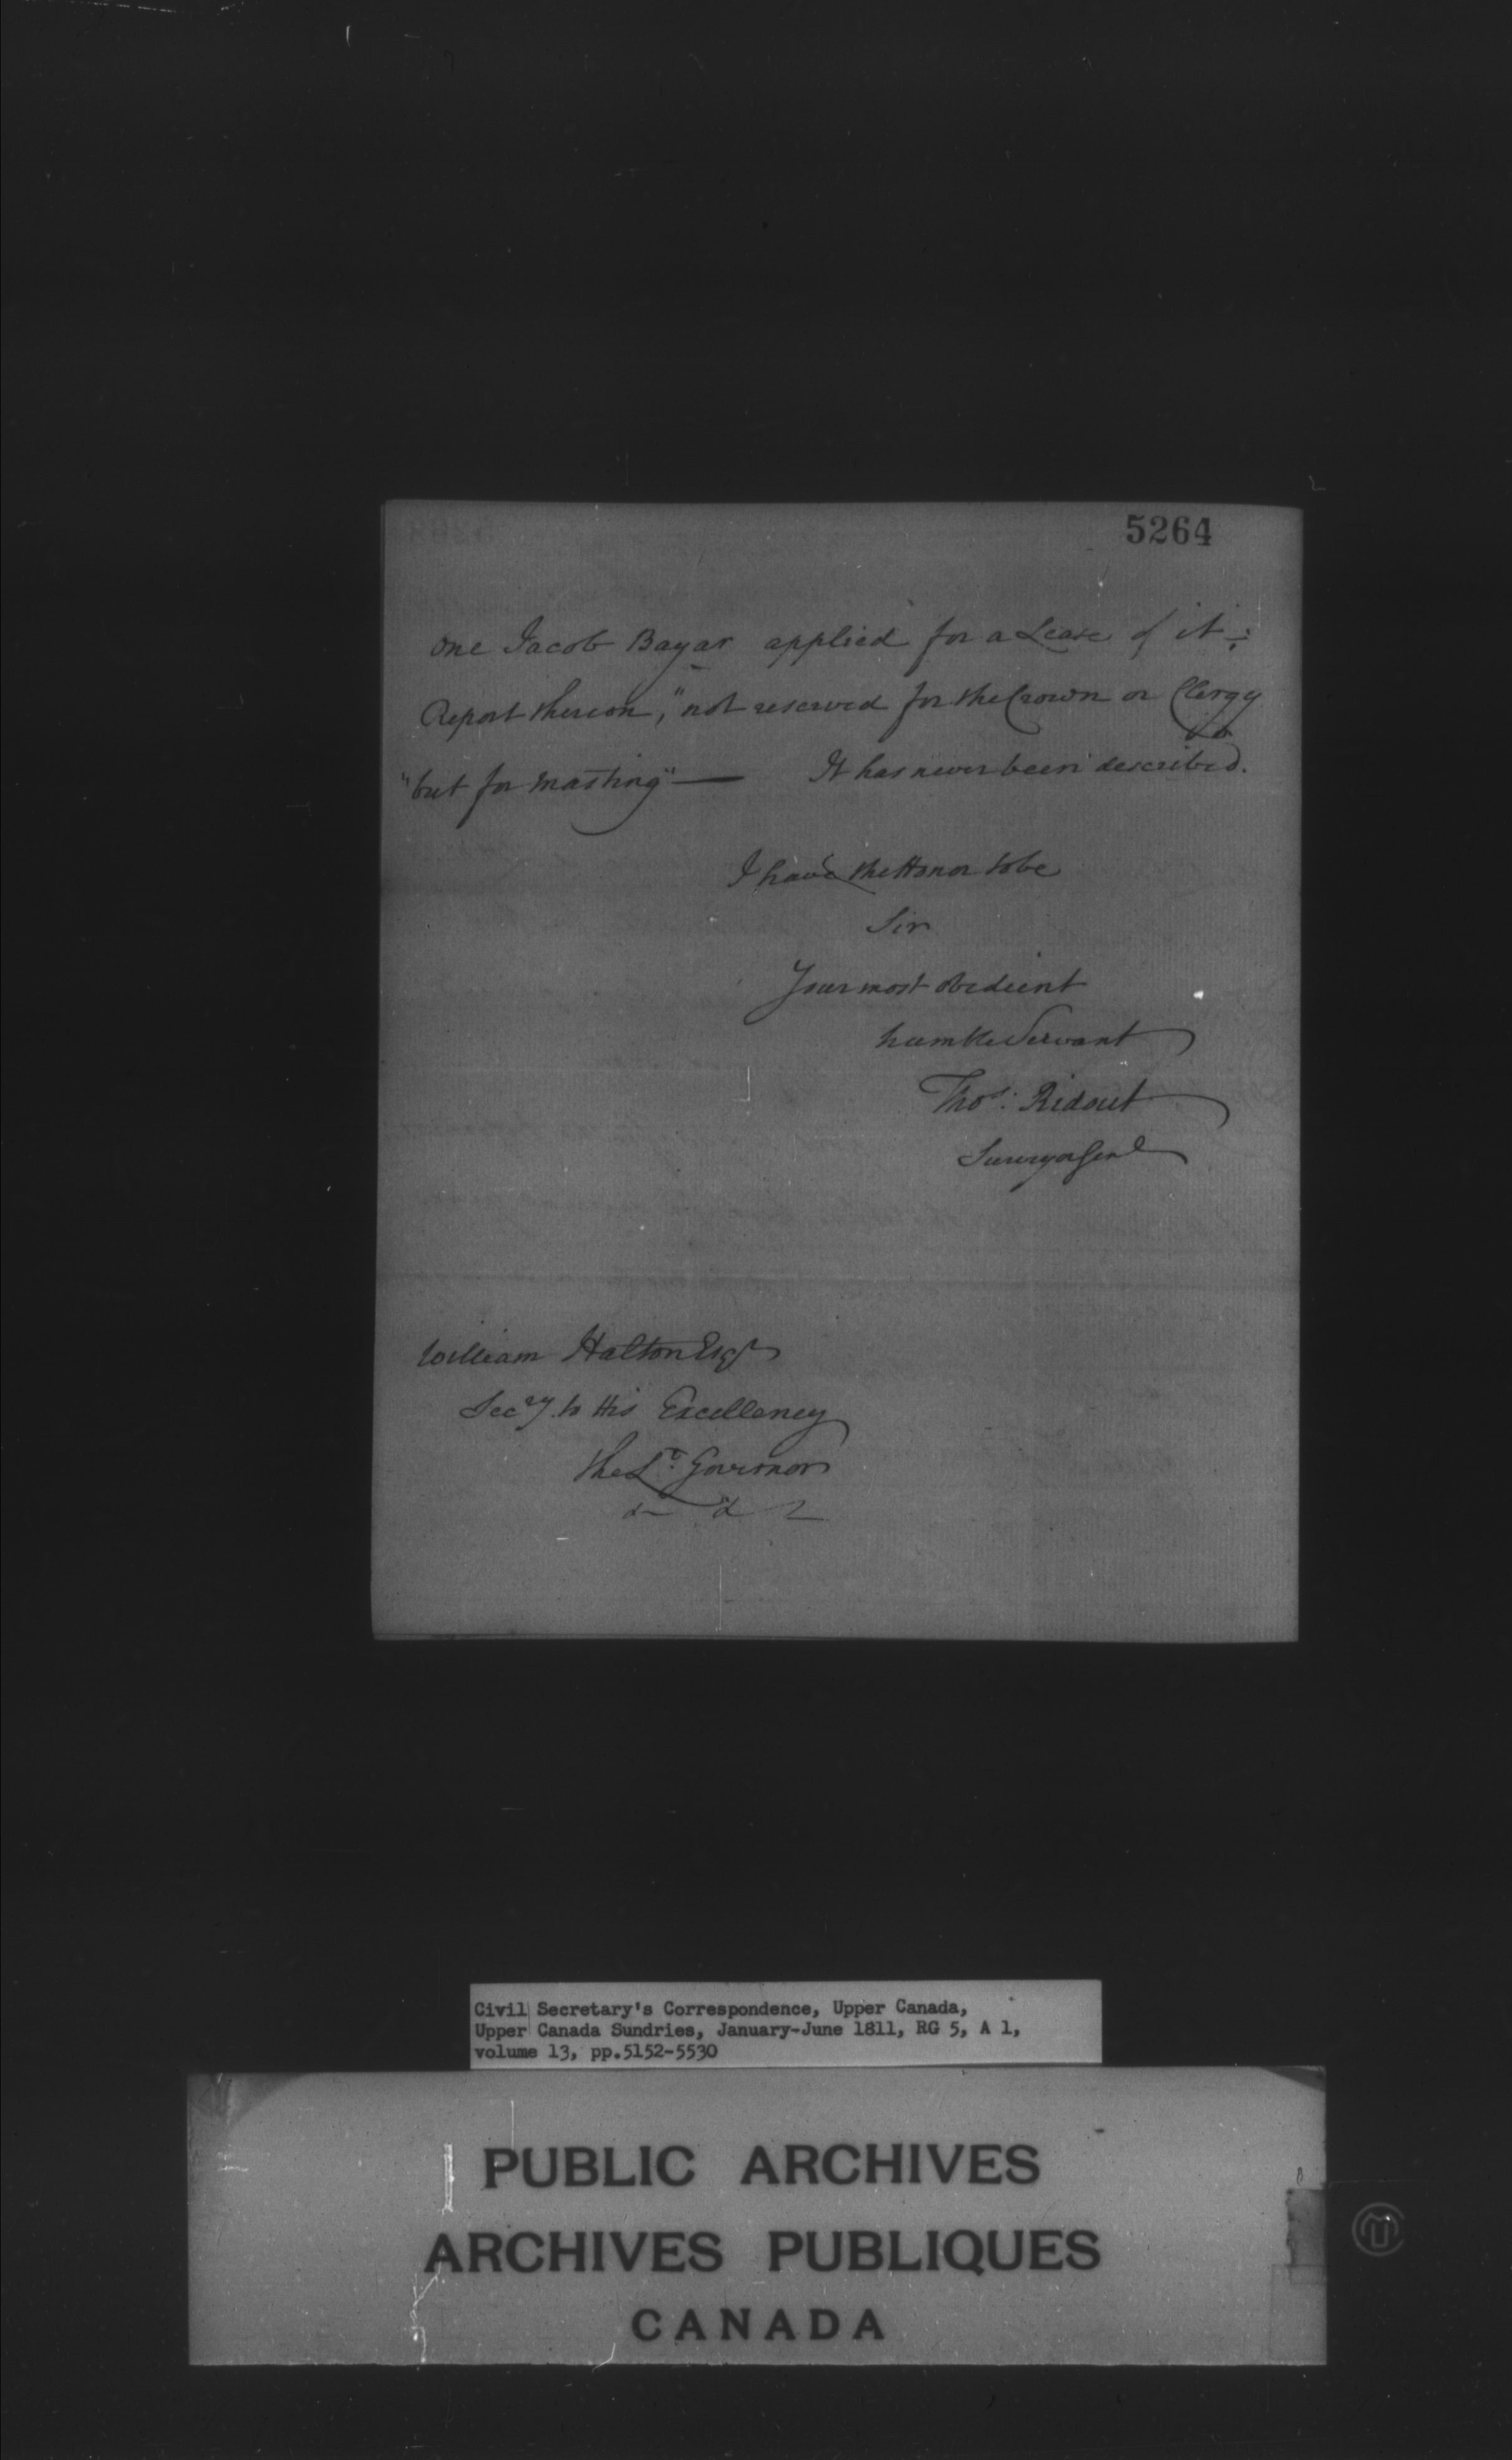 5264
one Jacob Bayar applied for a Lease of it;
Report thereon, "not reserved for the Crown or Clergy
"but for masting" — It has never been described.
I have the Honor to be
Sir
Your most obedient
humble Servant
Thos. Ridout
Surveyor Genl
William Halton Esqr
Secry to His Excellency
the Lt. Governor
&c &c &c
Civil Secretary's Correspondence, Upper Canada,
Upper Canada Sundries, January-June 1811, RG 5, A 1,
volume 13, pp.5152-5530
PUBLIC ARCHIVES
ARCHIVES PUBLIQUES
CANADA